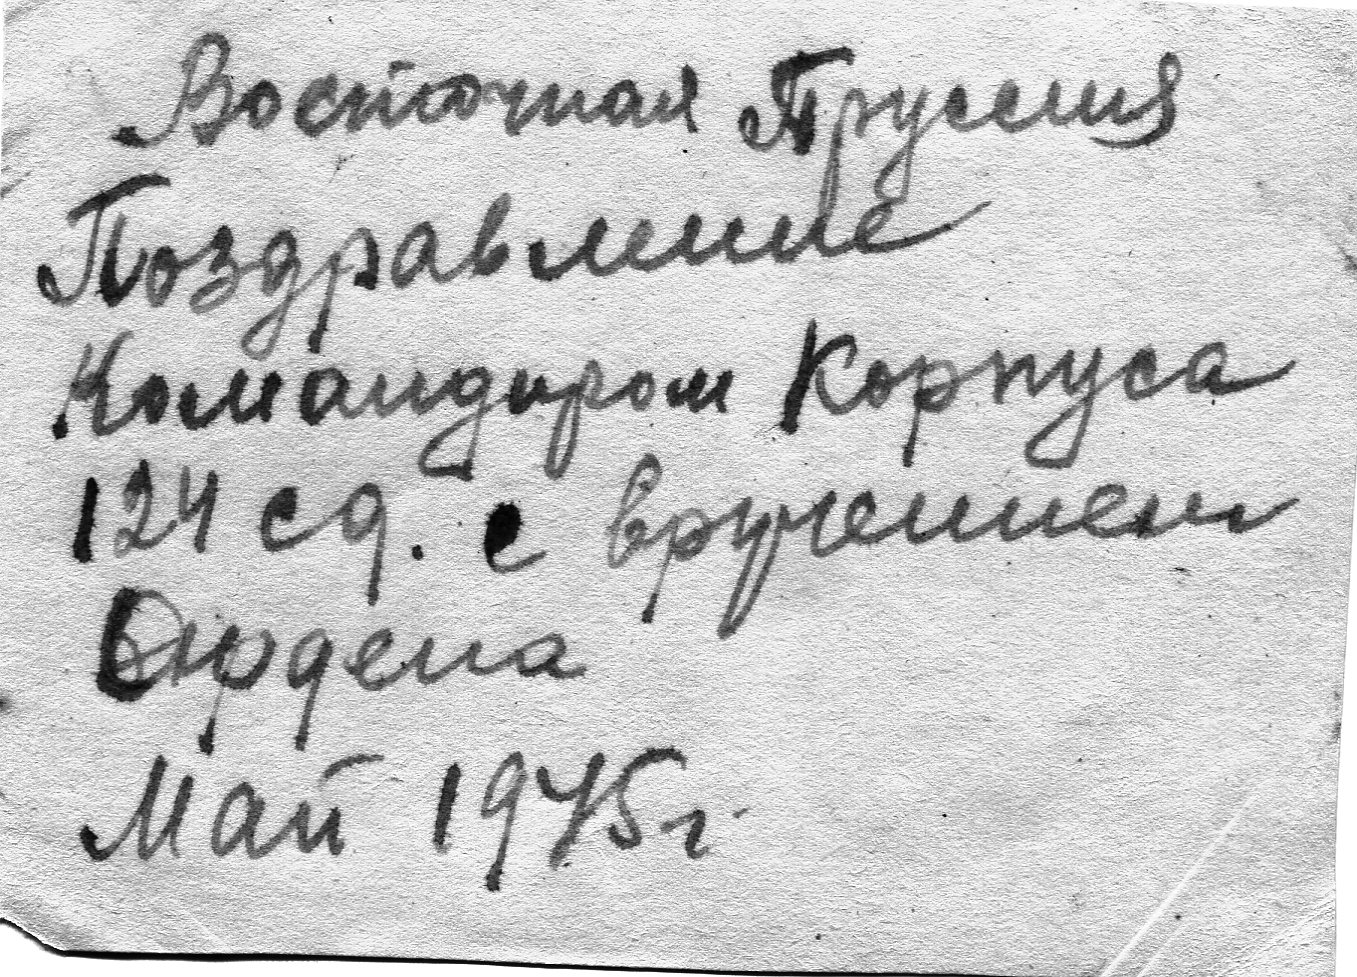 Восточная Пруссия
Поздравление
Командиром Корпуса
124 сд. с вручением
Ордена
Май 1945 г.